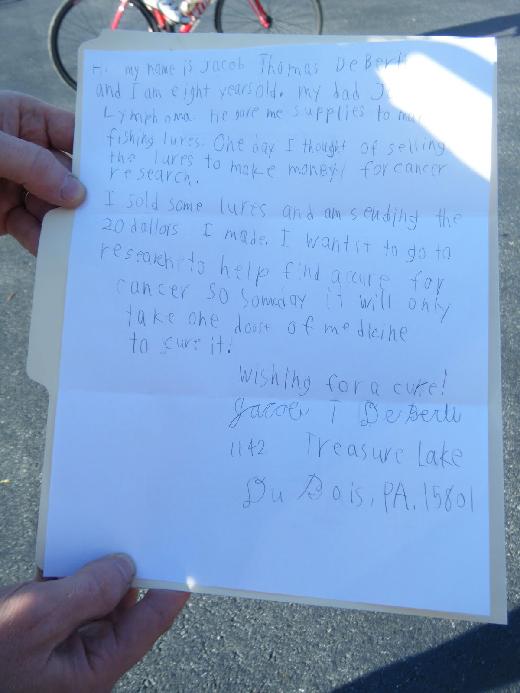 Hi my name is Jacob Thomas DeBerti
and I am eight years old. my dad
Lymphoma. he gave me supplies to
fishing lures. One day I thought of selling
the lures to make money for cancer
research.
I sold some lures and am sending the
20 dollors I made. I want it to go to
research to help find a cure for
cancer so someday it will only
take one doost of medicine
to cure it!
wishing for a cure!
Jacob T DeBerti
1142 Treasure Lake
Du Bois, PA. 15801